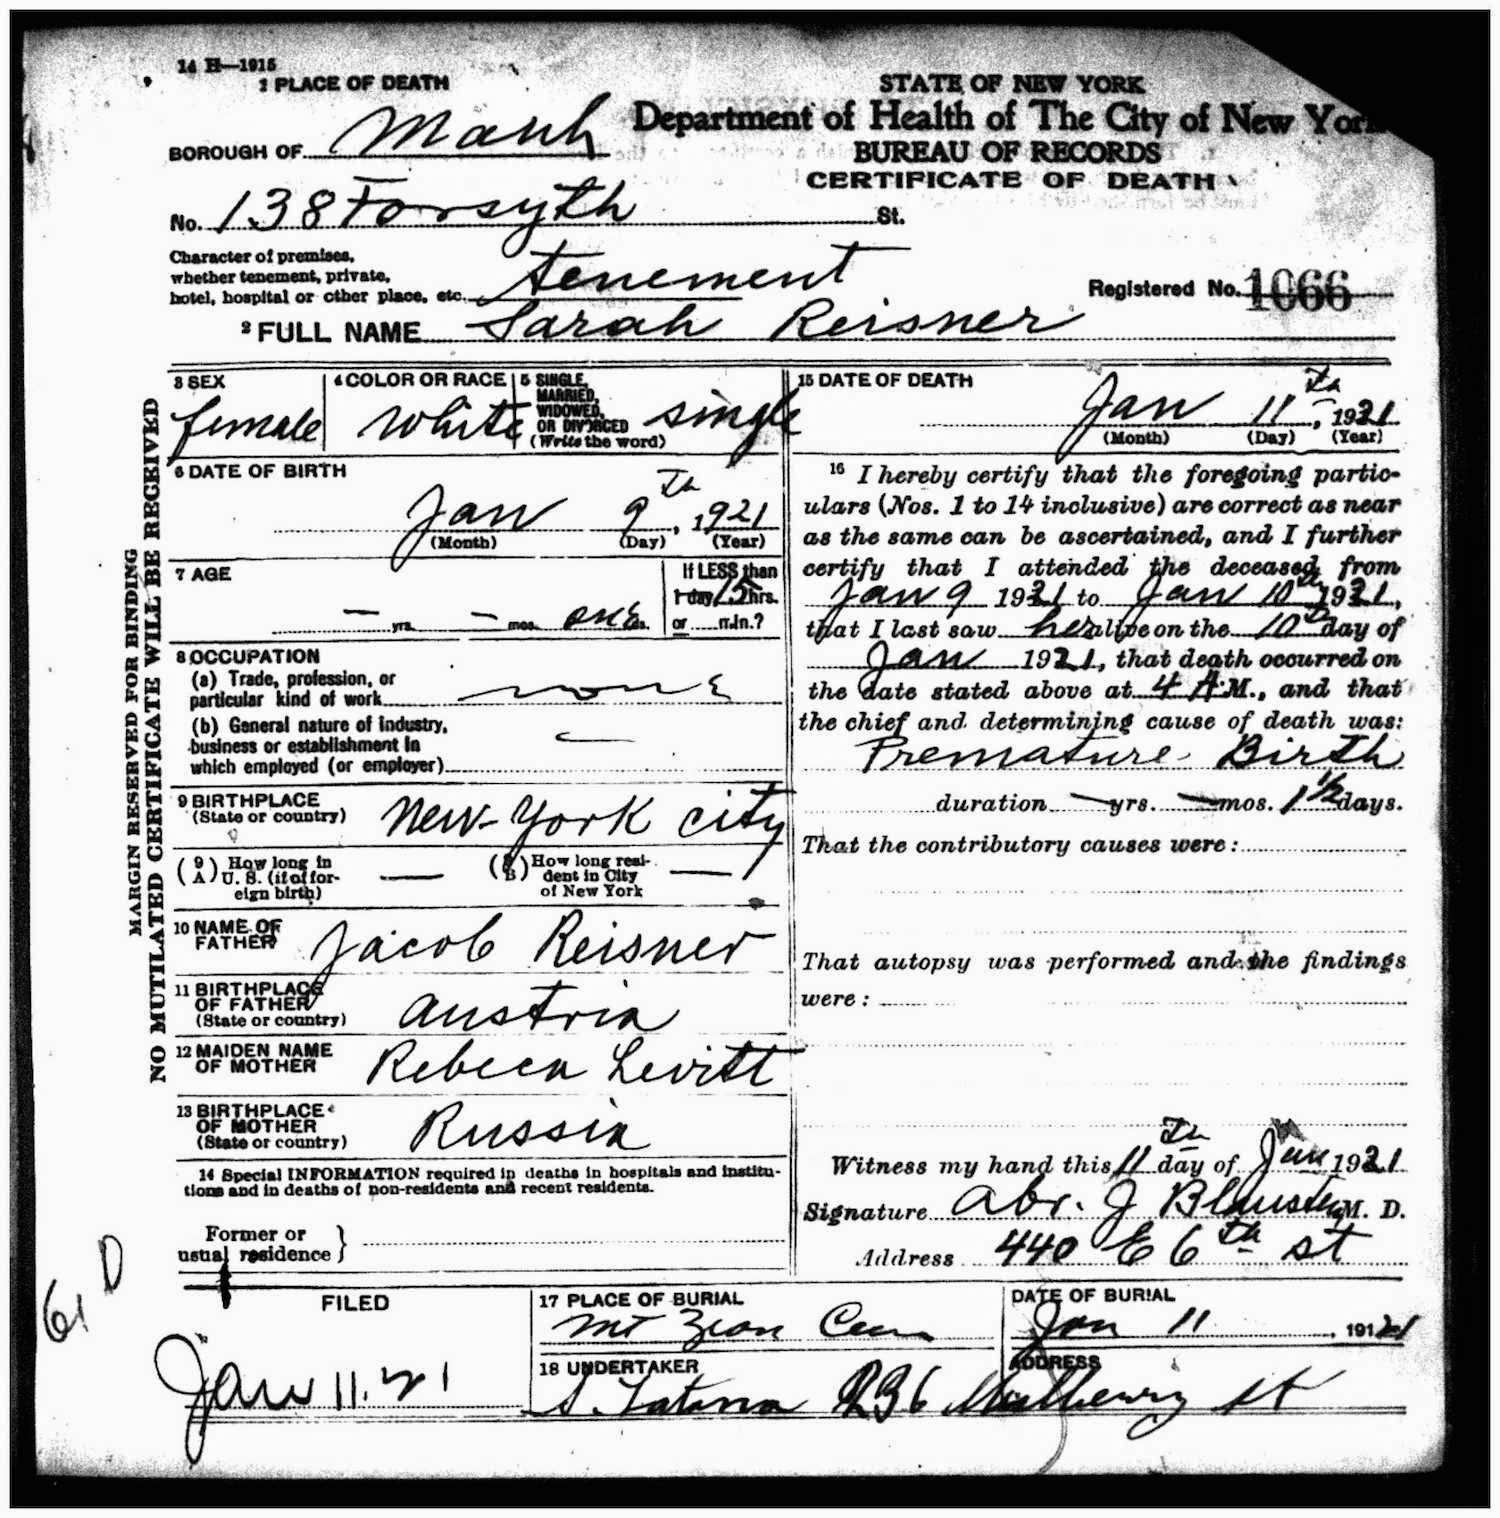 14 H—1915
1 PLACE OF DEATH
STATE OF NEW YORK
Department of Health of The City of New York
BUREAU OF RECORDS
CERTIFICATE OF DEATH
BOROUGH OF Manh
No. 138 Forsyth St.
Character of premises,
whether tenement, private,
hotel, hospital or other place, etc. tenement
Registered No. 1066
2 FULL NAME Sarah Reisner
3 SEX
female
4 COLOR OR RACE
White
5 SINGLE,
MARRIED,
WIDOWED,
OR DIVORCED
(Write the word)
single
6 DATE OF BIRTH
Jan 9th, 1921
(Month) (Day) (Year)
7 AGE
— yrs. — mos. one ds.
If LESS than
1 day 15 hrs.
or ... min.?
8 OCCUPATION
(a) Trade, profession, or
particular kind of work none
(b) General nature of industry,
business or establishment in
which employed (or employer) —
9 BIRTHPLACE
(State or country)
New-York city
(9A) How long in
U. S. (if of for-
eign birth) —
(9B) How long resi-
dent in City
of New York —
10 NAME OF
FATHER
Jacob Reisner
11 BIRTHPLACE
OF FATHER
(State or country)
Austria
12 MAIDEN NAME
OF MOTHER
Rebeca Levitt
13 BIRTHPLACE
OF MOTHER
(State or country)
Russia
14 Special INFORMATION required in deaths in hospitals and institu-
tions and in deaths of non-residents and recent residents.
Former or
usual residence }
15 DATE OF DEATH
Jan 11th, 1921
(Month) (Day) (Year)
16 I hereby certify that the foregoing partic-
ulars (Nos. 1 to 14 inclusive) are correct as near
as the same can be ascertained, and I further
certify that I attended the deceased from
Jan 9 1921 to Jan 10th 1921,
that I last saw her alive on the 10th day of
Jan 1921, that death occurred on
the date stated above at 4 A.M., and that
the chief and determining cause of death was:
Premature Birth
duration — yrs. — mos. 1 1/2 days.
That the contributory causes were:
That autopsy was performed and the findings
were:
Witness my hand this 11th day of Jan 1921
Signature Abr. J M. D.
Address 440 E 6th st
MARGIN RESERVED FOR BINDING
NO MUTILATED CERTIFICATE WILL BE RECEIVED
61 D
FILED
Jan 11. 21
17 PLACE OF BURIAL
Mt Zion Cem
DATE OF BURIAL
Jan 11, 1921
18 UNDERTAKER
S.
ADDRESS
236 Mulberry st